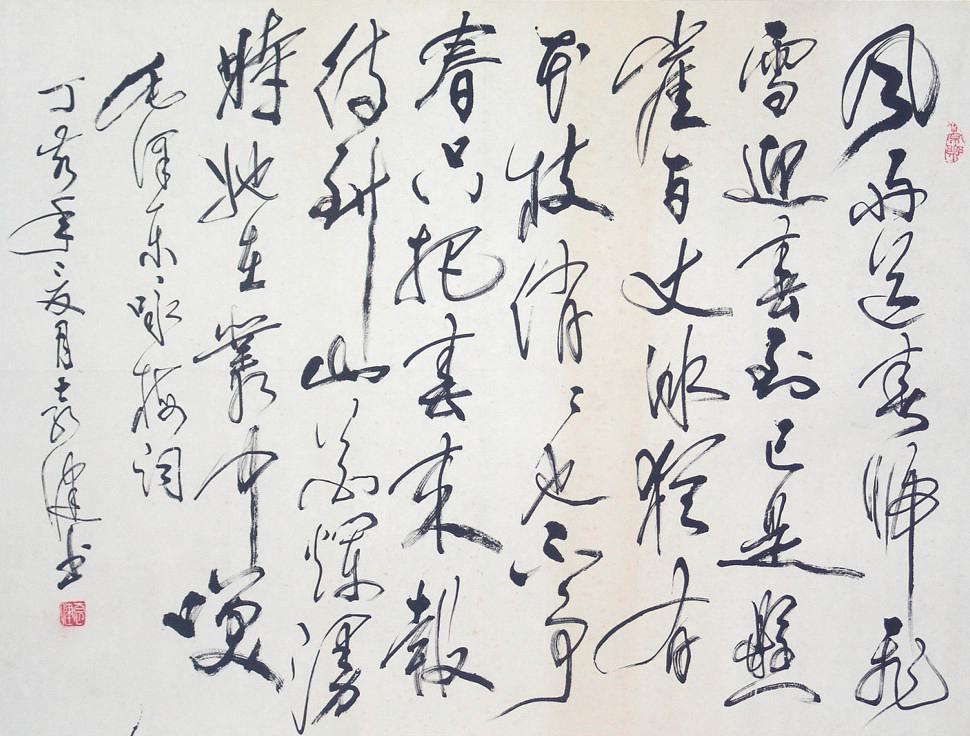 风雨送春归飞
雪迎春到已是懸
崖百丈冰猶有
花枝俏俏也不争
春只把春来報
待到山花爛漫
時她在叢中咲
毛泽东咏梅词
丁亥年夏月书